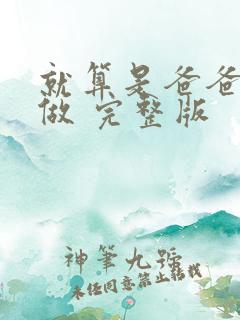 就算是爸爸
做 完整版
神筆九號
未经同意禁止转载